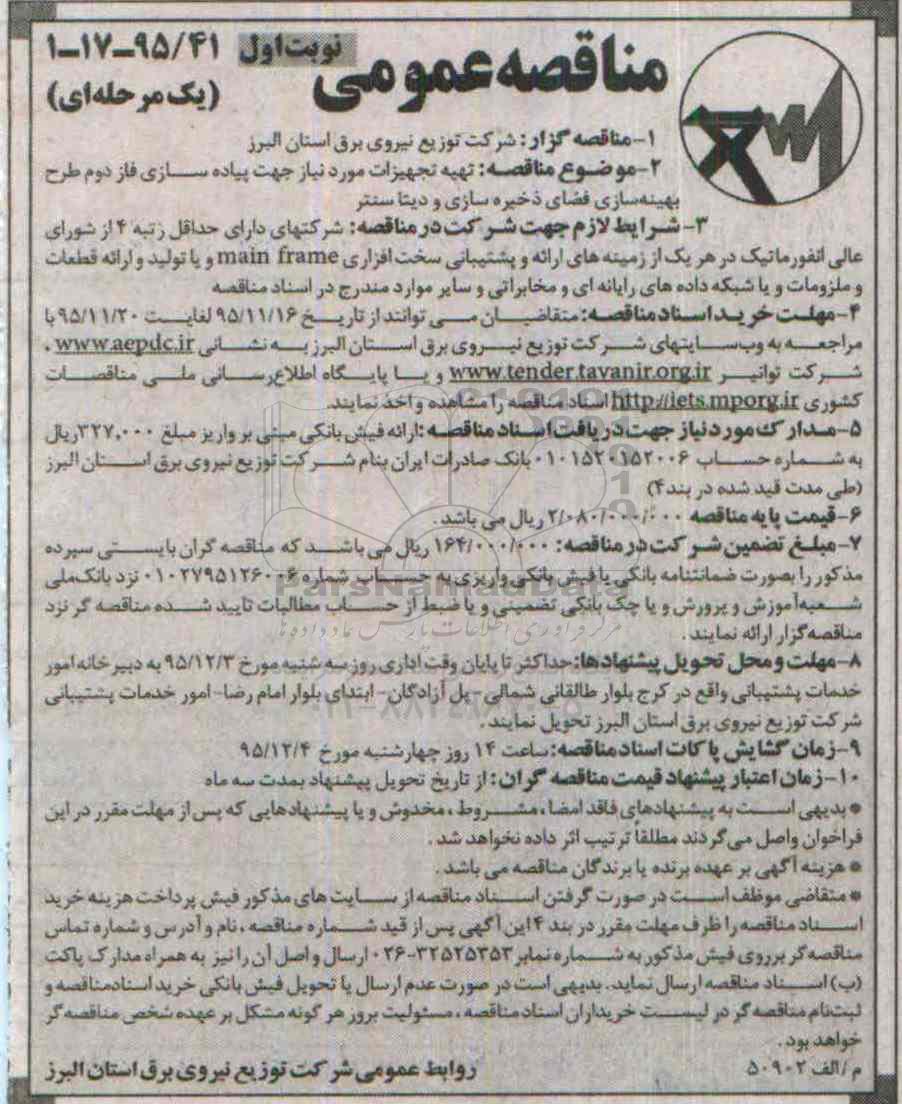 مناقصه عمومی
نوبت اول ۹۵/۴۱-۱۷-۱
(یک مرحله‌ای)
۱-مناقصه گزار: شرکت توزیع نیروی برق استان البرز
۲-موضوع مناقصه: تهیه تجهیزات مورد نیاز جهت پیاده سازی فاز دوم طرح
بهینه‌سازی فضای ذخیره سازی و دیتا سنتر
۳-شرایط لازم جهت شرکت در مناقصه: شرکتهای دارای حداقل رتبه ۴ از شورای
عالی انفورماتیک در هر یک از زمینه های ارائه و پشتیبانی سخت افزاری main frame و یا تولید و ارائه قطعات
و ملزومات و یا شبکه داده های رایانه ای و مخابراتی و سایر موارد مندرج در اسناد مناقصه
۴-مهلت خرید اسناد مناقصه: متقاضیان می توانند از تاریخ ۹۵/۱۱/۱۶ لغایت ۹۵/۱۱/۲۰ با
مراجعه به وب‌سایتهای شرکت توزیع نیروی برق استان البرز به نشانی www.aepdc.ir ،
شرکت توانیر www.tender.tavanir.org.ir و یا پایگاه اطلاع‌رسانی ملی مناقصات
کشوری http://iets.mporg.ir اسناد مناقصه را مشاهده و اخذ نمایند.
۵-مدارک مورد نیاز جهت دریافت اسناد مناقصه: ارائه فیش بانکی مبنی بر واریز مبلغ ۳۲۷,۰۰۰ریال
به شماره حساب ۰۱۰۱۵۲۰۱۵۲۰۰۶ بانک صادرات ایران بنام شرکت توزیع نیروی برق استان البرز
(طی مدت قید شده در بند۴)
۶-قیمت پایه مناقصه ۲/۰۸۰/۰۰۰/۰۰۰ ریال می باشد.
۷-مبلغ تضمین شرکت در مناقصه: ۱۶۴/۰۰۰/۰۰۰ ریال می باشد که مناقصه گران بایستی سپرده
مذکور را بصورت ضمانتنامه بانکی یا فیش بانکی واریزی به حساب شماره ۰۱۰۲۷۹۵۱۲۶۰۰۶ نزد بانک‌ملی
شعبه‌آموزش و پرورش و یا چک بانکی تضمینی و یا ضبط از حساب مطالبات تایید شده مناقصه گر نزد
مناقصه‌گزار ارائه نمایند.
ParsNamadData
۸-مهلت و محل تحویل پیشنهادها: حداکثر تا پایان وقت اداری روز سه شنبه مورخ ۹۵/۱۲/۳ به دبیر خانه امور
خدمات پشتیبانی واقع در کرج بلوار طالقانی شمالی- پل آزادگان- ابتدای بلوار امام رضا- امور خدمات پشتیبانی
شرکت توزیع نیروی برق استان البرز تحویل نمایند.
۹-زمان گشایش پاکات اسناد مناقصه: ساعت ۱۴ روز چهارشنبه مورخ ۹۵/۱۲/۴
۱۰-زمان اعتبار پیشنهاد قیمت مناقصه گران: از تاریخ تحویل پیشنهاد بمدت سه ماه
* بدیهی است به پیشنهادهای فاقد امضا، مشروط، مخدوش و یا پیشنهادهایی که پس از مهلت مقرر در این
فراخوان واصل می‌گردند مطلقاً ترتیب اثر داده نخواهد شد.
* هزینه آگهی بر عهده برنده یا برندگان مناقصه می باشد.
* متقاضی موظف است در صورت گرفتن اسناد مناقصه از سایت های مذکور فیش پرداخت هزینه خرید
اسناد مناقصه را ظرف مهلت مقرر در بند ۴ این آگهی پس از قید شماره مناقصه، نام و آدرس و شماره تماس
مناقصه‌گر برروی فیش مذکور به شماره نمابر ۳۲۵۲۵۳۵۳-۰۲۶ ارسال و اصل آن را نیز به همراه مدارک پاکت
(ب) اسناد مناقصه ارسال نماید. بدیهی است در صورت عدم ارسال یا تحویل فیش بانکی خرید اسنادمناقصه و
ثبت‌نام مناقصه گر در لیست خریداران اسناد مناقصه، مسئولیت بروز هر گونه مشکل بر عهده شخص مناقصه‌گر
خواهد بود.
م/الف ۵۰۹۰۲
روابط عمومی شرکت توزیع نیروی برق استان البرز